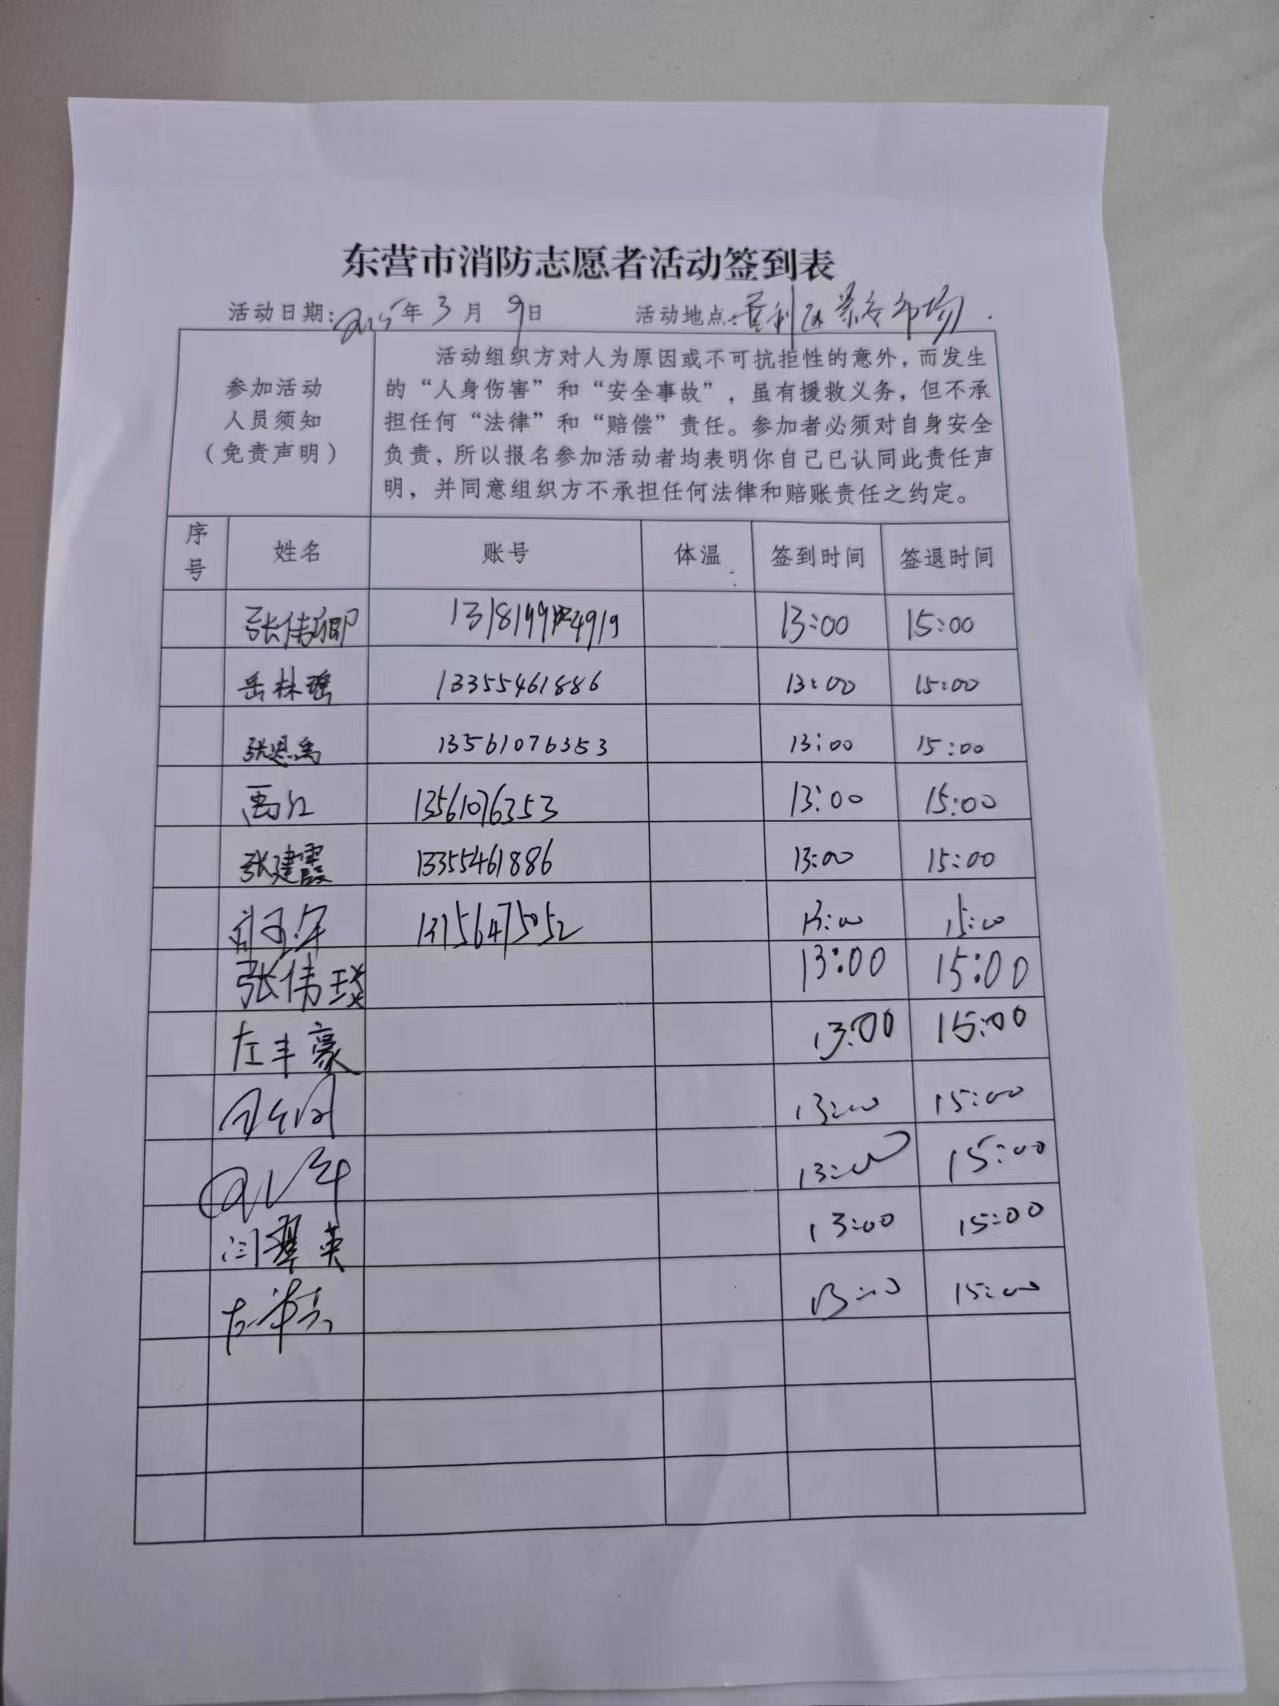 东营市消防志愿者活动签到表
活动日期:2025年3月9日 活动地点:垦利区 市场.
参加活动
人员须知
(免责声明)
活动组织方对人为原因或不可抗拒性的意外,而发生
的“人身伤害”和“安全事故”,虽有援救义务,但不承
担任何“法律”和“赔偿”责任。参加者必须对自身安全
负责,所以报名参加活动者均表明你自己已认同此责任声
明,并同意组织方不承担任何法律和赔账责任之约定。
序号 姓名 账号 体温 签到时间 签退时间
张伟卿 13:00 15:00
岳林瑶 13355461886 13:00 15:00
张恩禹 13561076353 13:00 15:00
禹红 13561076353 13:00 15:00
张建霞 13355461886 13:00 15:00
13:00 15:00
张伟琰 13:00 15:00
左丰豪 13:00 15:00
13:00 15:00
13:00 15:00
闫翠英 13:00 15:00
13:00 15:00